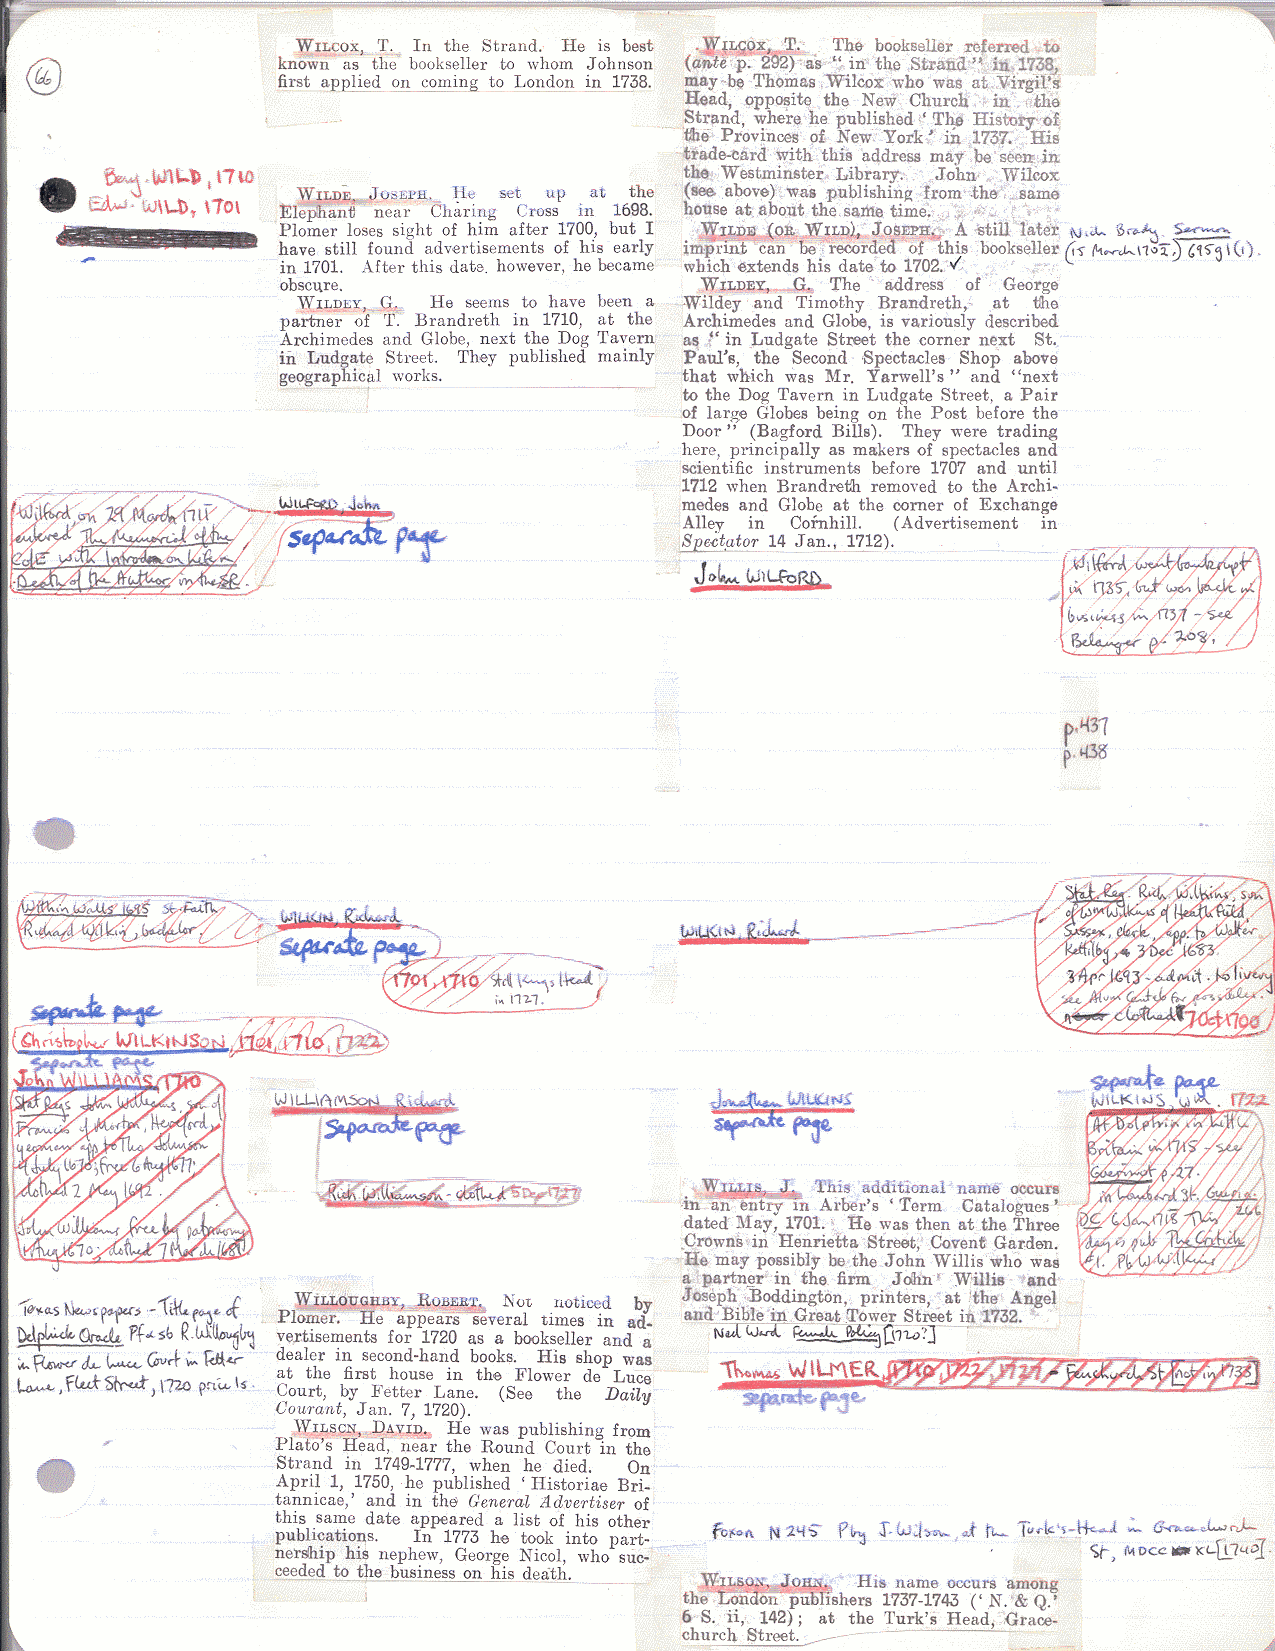 66
WILCOX, T. In the Strand. He is best
known as the bookseller to whom Johnson
first applied on coming to London in 1738.
Benj. WILD, 1710
Edw. WILD, 1701
WILDE, JOSEPH. He set up at the
Elephant near Charing Cross in 1698.
Plomer loses sight of him after 1700, but I
have still found advertisements of his early
in 1701. After this date, however, he became
obscure.
WILDEY, G. He seems to have been a
partner of T. Brandreth in 1710, at the
Archimedes and Globe, next the Dog Tavern
in Ludgate Street. They published mainly
geographical works.
WILCOX, T. The bookseller referred to
(ante p. 292) as “ in the Strand ” in 1738,
may be Thomas Wilcox who was at Virgil's
Head, opposite the New Church in the
Strand, where he published ‘ The History of
the Provinces of New York ’ in 1737. His
trade-card with this address may be seen in
the Westminster Library. John Wilcox
(see above) was publishing from the same
house at about the same time.
WILDE (OR WILD), JOSEPH. A still later
imprint can be recorded of this bookseller
which extends his date to 1702. ✓
Nich. Brady Sermon
(15 March 1702) 695g1(1).
WILDEY, G. The address of George
Wildey and Timothy Brandreth, at the
Archimedes and Globe, is variously described
as “ in Ludgate Street the corner next St.
Paul's, the Second Spectacles Shop above
that which was Mr. Yarwell's ” and “next
to the Dog Tavern in Ludgate Street, a Pair
of large Globes being on the Post before the
Door ” (Bagford Bills). They were trading
here, principally as makers of spectacles and
scientific instruments before 1707 and until
1712 when Brandreth removed to the Archi-
medes and Globe at the corner of Exchange
Alley in Cornhill. (Advertisement in
Spectator 14 Jan., 1712).
Wilford, on 29 March 1711
entered The Memorial of the
CofE with Introdn on Life &
Death of the Author in the SR.
WILFORD, John
separate page
John WILFORD
Wilford went bankrupt
in 1735, but was back in
business in 1737 - see
Belanger p. 208.
p.437
p.438
Within Walls 1695 St. Faith
Richard Wilkin, bachelor.
WILKIN, Richard
separate page
1701, 1710 Still Kings Head
in 1727.
WILKIN, Richard
Stat. Reg. Rich. Wilkins, son
of Wm Wilkins of Heathfield,
Sussex, clerk, app. to Walter
Kettilby, 3 Dec 1683.
3 Apr 1693 - admit. to livery
see Alum Cantab for possibles.
clothed 7 Oct 1700
separate page
Christopher WILKINSON, 1701, 1710, 1722
separate page
John WILLIAMS, 1710
Stat Regs John Williams, son of
Francis of Hereford,
yeoman app to Tho. Johnson
4 July 1670; free 6 Aug 1677;
clothed 2 May 1692.
John Williams free by patrimony
Aug 1670; clothed 7 March
WILLIAMSON, Richard
separate page
Rich Williamson - clothed 5 Dec 1727
Jonathan WILKINS
separate page
separate page
WILKINS, Wm. 1722
At Dolphin in Little
Britain in 1715 - see
Guerinot p. 27.
in Lombard St. Guerin. 266
DC 6 Jan 1718 This
day is pub The Critick
#1. Pb W. Wilkins
WILLIS, J. This additional name occurs
in an entry in Arber's ‘ Term Catalogues ’
dated May, 1701. He was then at the Three
Crowns in Henrietta Street, Covent Garden.
He may possibly be the John Willis who was
a partner in the firm John Willis and
Joseph Boddington, printers, at the Angel
and Bible in Great Tower Street in 1732.
Ned Ward Female Policy [1720?]
Thomas WILMER, 1710, 1722, 1727 - Fenchurch St [not in 1733]
separate page
Texas Newspapers - Title page of
Delphick Oracle Pf & sb R. Willoughby
in Flower de Luce Court in Fetter
Lane, Fleet Street, 1720 price 1s.
WILLOUGHBY, ROBERT. Not noticed by
Plomer. He appears several times in ad-
vertisements for 1720 as a bookseller and a
dealer in second-hand books. His shop was
at the first house in the Flower de Luce
Court, by Fetter Lane. (See the Daily
Courant, Jan. 7, 1720).
WILSON, DAVID. He was publishing from
Plato's Head, near the Round Court in the
Strand in 1749-1777, when he died. On
April 1, 1750, he published ‘ Historiae Bri-
tannicae,’ and in the General Advertiser of
this same date appeared a list of his other
publications. In 1773 he took into part-
nership his nephew, George Nicol, who suc-
ceeded to the business on his death.
Foxon N245 P by J. Wilson, at the Turk's-Head in Gracechurch
St, MDCC XL [1740].
WILSON, JOHN. His name occurs among
the London publishers 1737-1743 (‘ N. & Q.’
6 S. ii, 142); at the Turk's Head, Grace-
church Street.